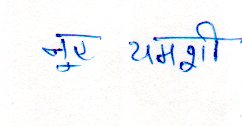 नूर यमशी